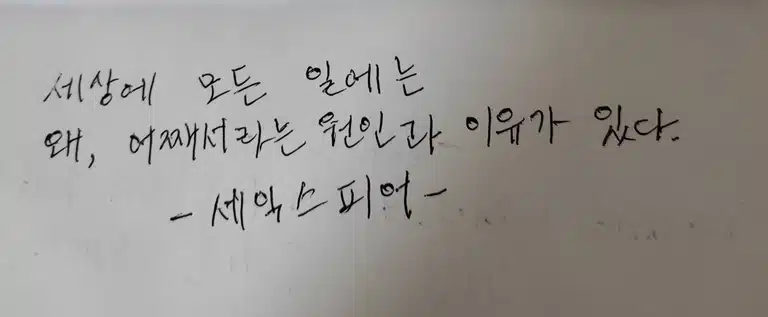 세상에 모든 일에는
왜, 어째서라는 원인과 이유가 있다.
- 세익스피어 -